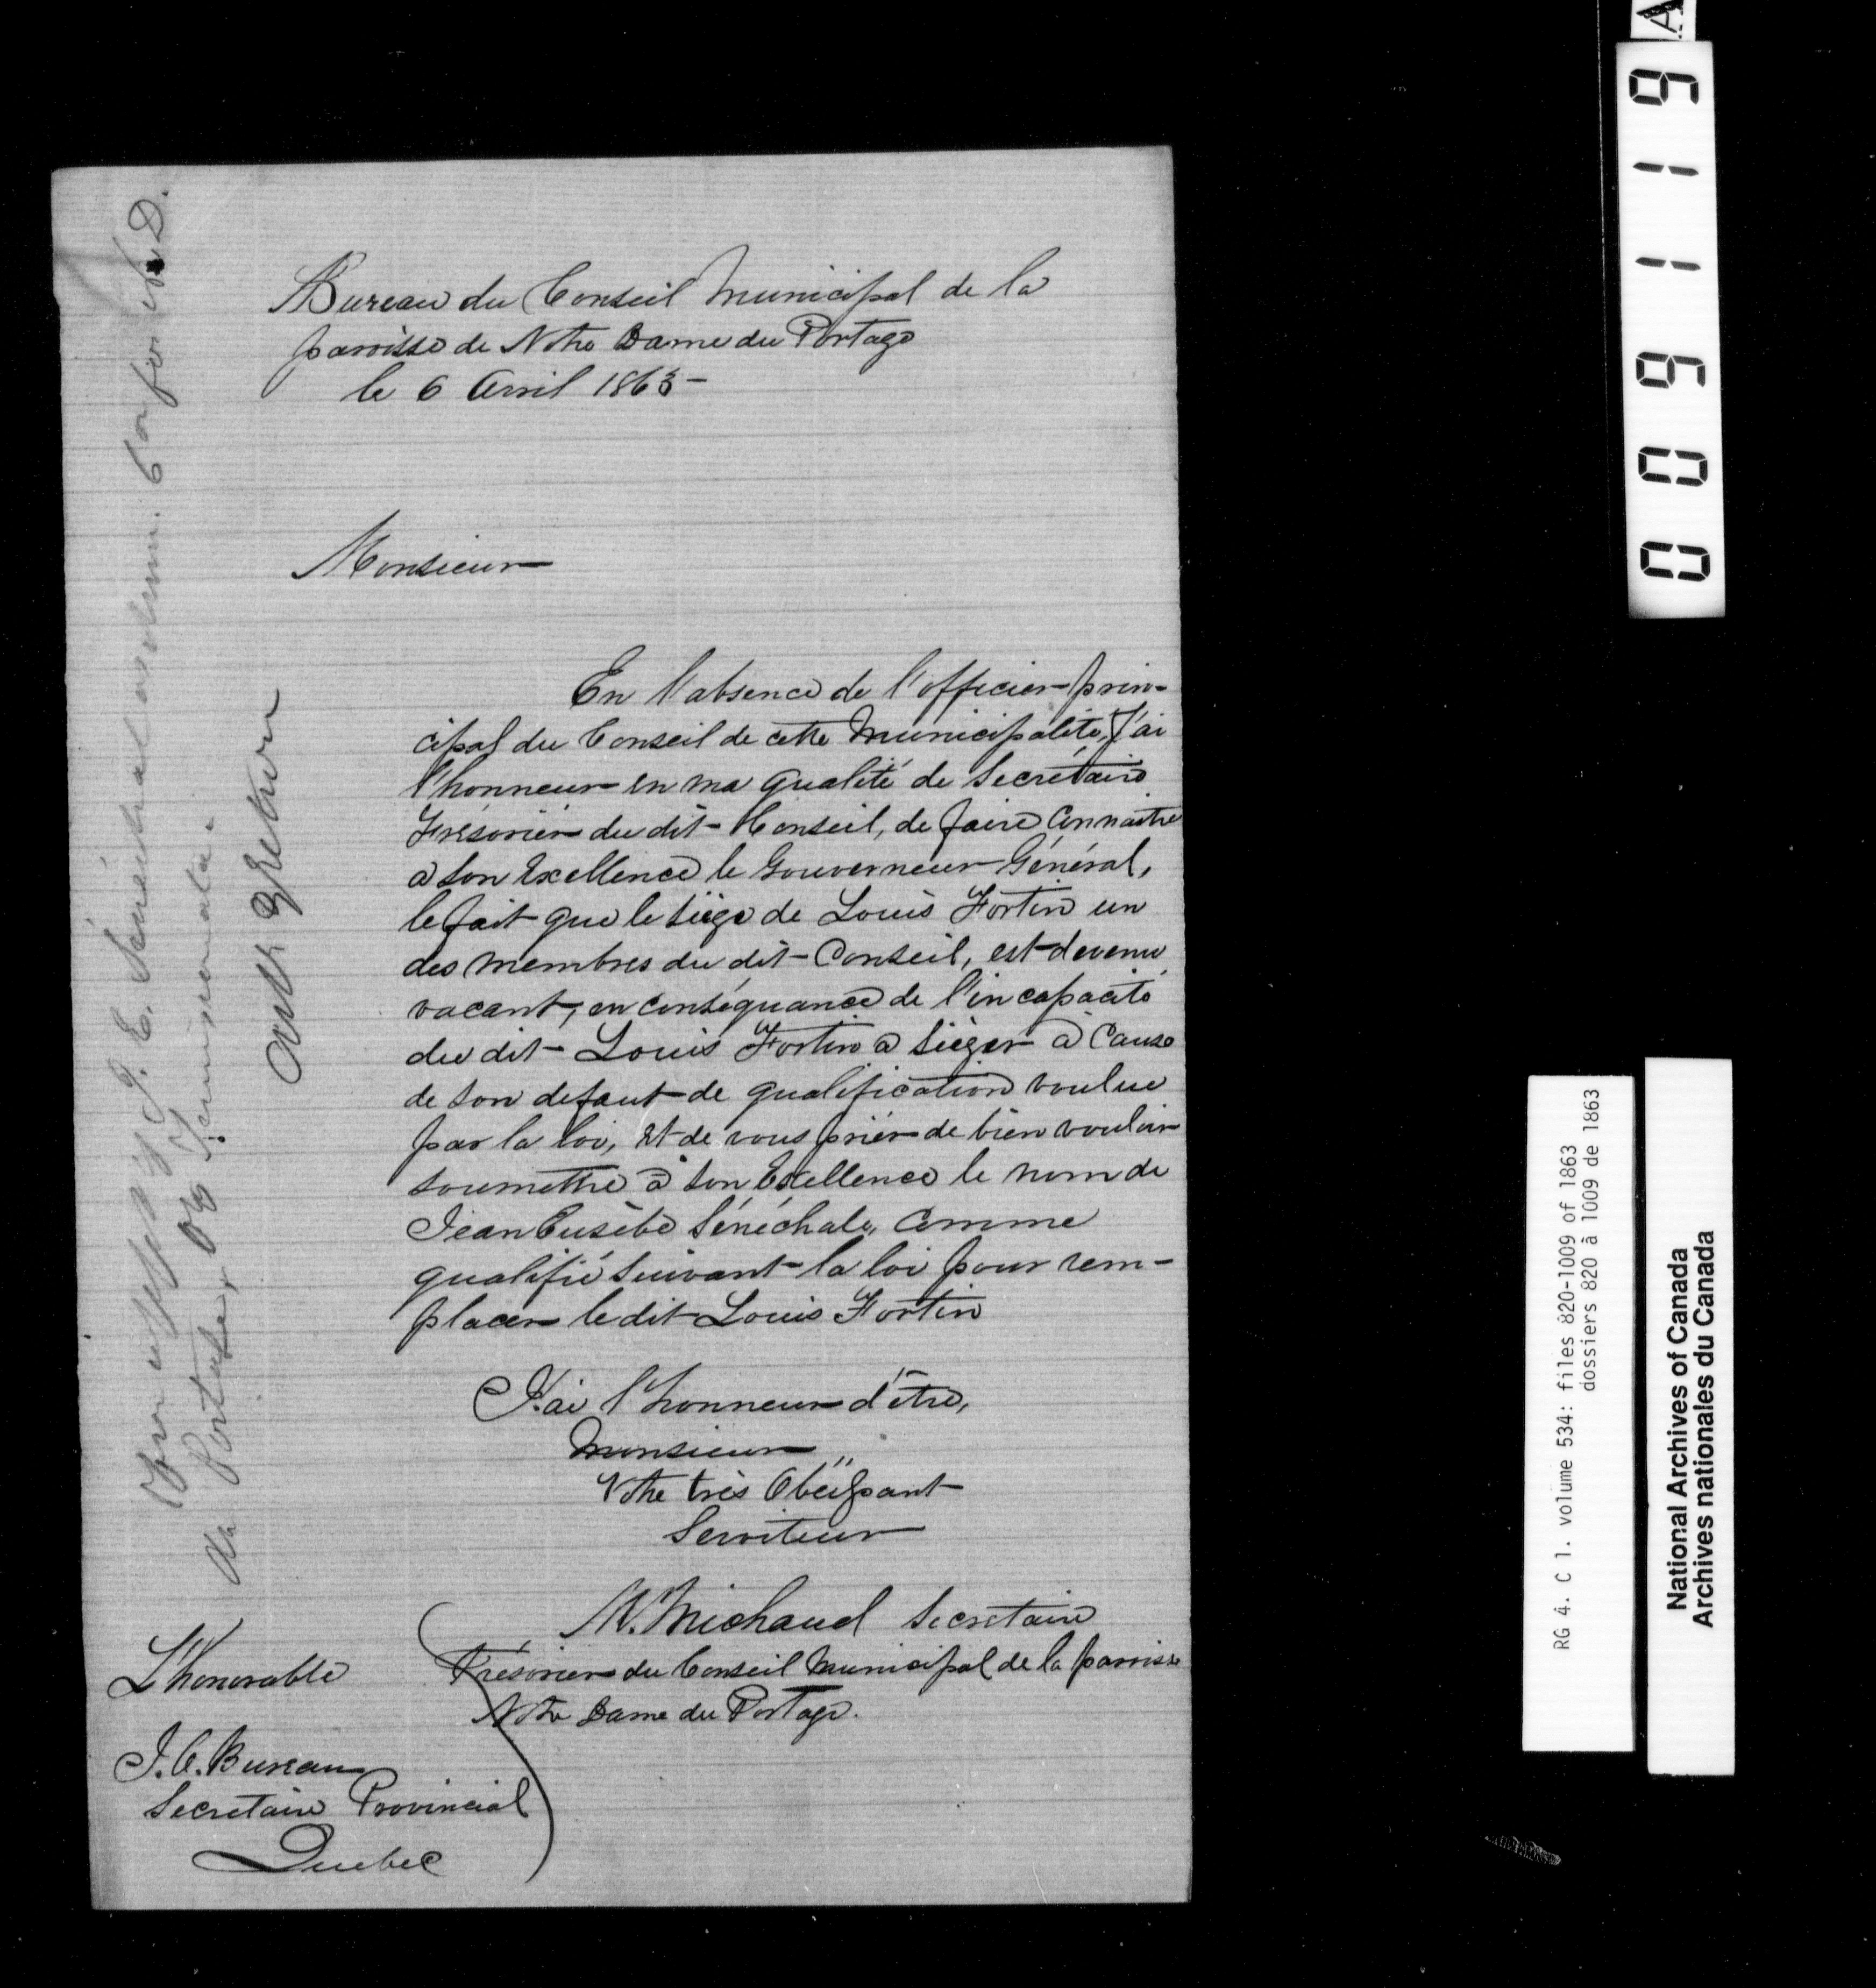 Bureau du Conseil Municipal de la
paroisse de Notre Dame du Portage
le 6 Avril 1863 -
Monsieur
En l'absence de l'officier prin-
cipal du Conseil de cette Municipalité, J'ai
l'honneur en ma qualité de Secrétaire
Trésorier du dit Conseil, de faire Connaitre
a Son Excellence le Gouverneur Général,
le fait que le Siége de Louis Fortin un
des membres du dit Conseil, est devenu
vacant, en conséquance de l'incapacité
du dit Louis Fortin a Siéger à Cause
de Son defaut de qualification voulue
par la loi, et de vous prier de bien vouloir
Soumettre à Son Excellence le nom de
Jean Eusèbe Sénéchale, Comme
qualifié Suivant la loi pour rem-
placer le dit Louis Fortin
J'ai l'honneur d'être,
Monsieur,
Votre très Obéissant
Serviteur
N. Michaud Secretaire
Trésorier du Conseil Municipal de la paroisse
Notre Dame du Portage.
L'Honorable
J. O. Bureau
Secretaire Provincial
Quebec
J. E. Sénéchal
du Portage, Of Temiscouata.
009119
A
RG 4. C 1. volume 534: files 820-1009 of 1863
dossiers 820 à 1009 de 1863
National Archives of Canada
Archives nationales du Canada